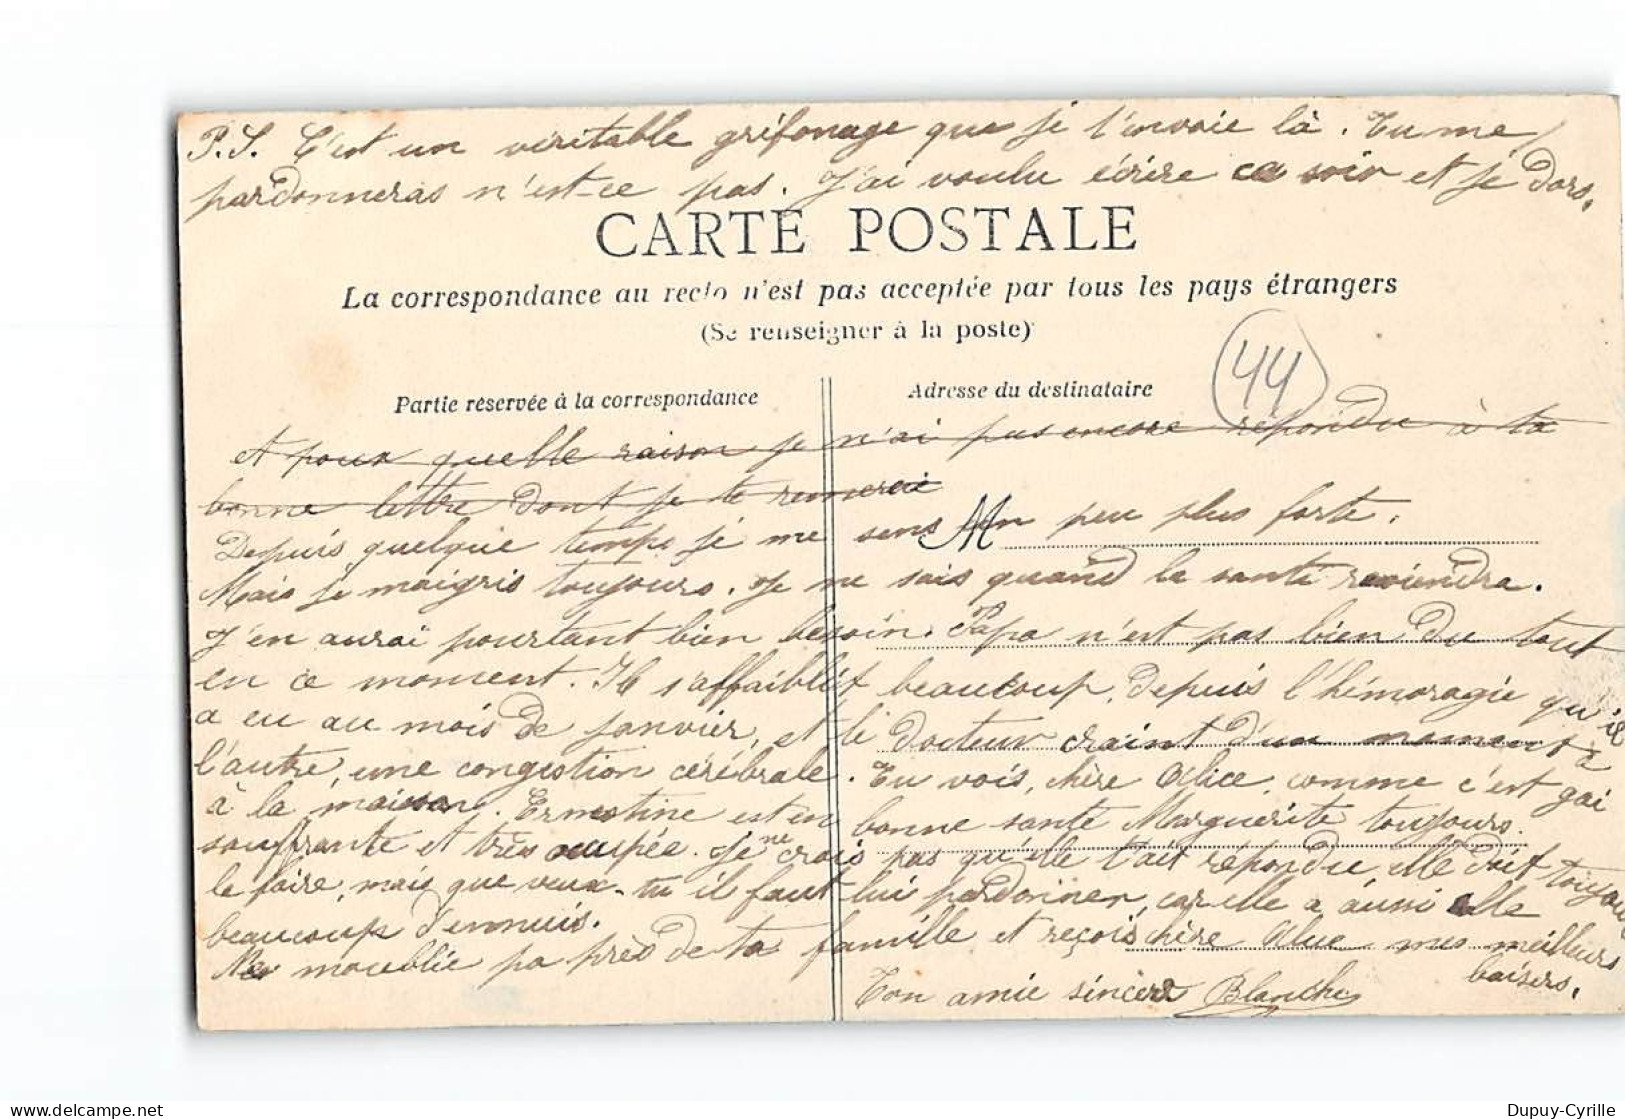 P.S. C'est un véritable grifonage que je t'envoie là. Tu me
pardonneras n'est-ce pas. J'ai voulu écrire ce soir et je dors.
CARTE POSTALE
La correspondance au recto n'est pas acceptée par tous les pays étrangers
(Se renseigner à la poste)
44
Partie réservée à la correspondance
Adresse du destinataire
et pour quelle raison je n'ai pas encore répondu à ta
bonne lettre dont je te remercie
M
Depuis quelque temps je me sens un peu plus forte.
Mais je maigris toujours. Je ne sais quand la santé reviendra.
J'en aurai pourtant bien besoin. Papa n'est pas bien du tout
en ce moment. Il s'affaiblit beaucoup, depuis l'hémoragie qu'il
a eu au mois de janvier, et le docteur craint d'un moment à
l'autre, une congestion cérébrale. Tu vois, chère Alice, comme c'est gai
à la maison. Ernestine est en bonne santé Marguerite toujours
souffrante et très occupée. Je ne crois pas qu'elle t'ait répondu elle doit toujours
le faire, mais que veux-tu il faut lui pardonner, car elle a aussi elle
beaucoup d'ennuis.
Ne m'oublie pa près de ta famille et reçois, chère Alice mes meilleurs
baisers.
Ton amie sincère Blanche
Dupuy-Cyrille